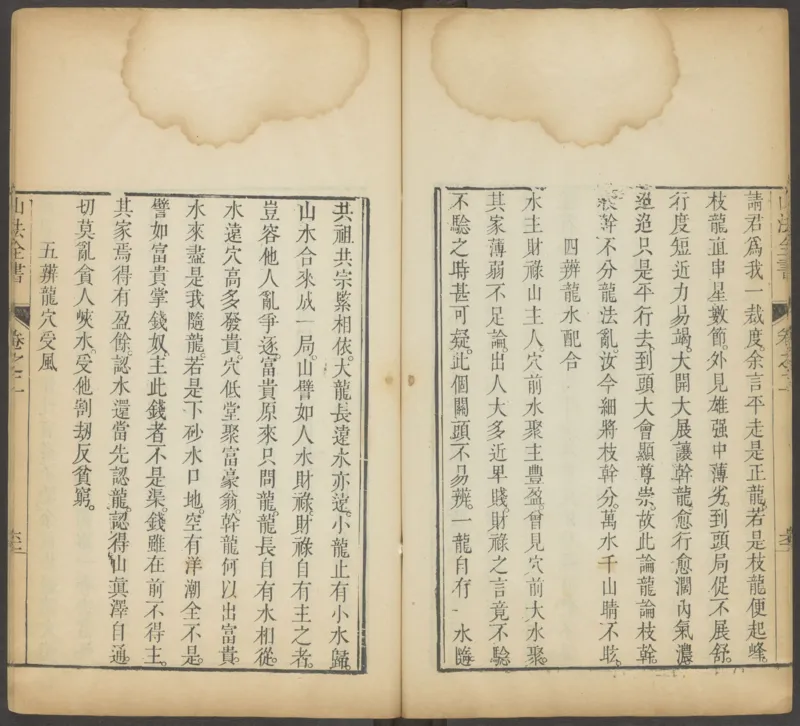 請君爲我一裁度。余言平走是正龍。若是枝龍便起峰。
枝龍直串星數節。外見雄强中薄劣。到頭局促不展舒。
行度短近力易竭。大開大展讓幹龍。愈行愈濶內氣濃。
迤迤只是平行去。到頭大會顯尊崇。故此論龍論枝幹。
枝幹不分龍法亂。汝今細將枝幹分。萬水千山睛不眩。
四辨龍水配合
水主財祿山主人。穴前水聚主豐盈。曾見穴前大水聚。
其家薄弱不足論。出人大多近卑賤。財祿之言竟不驗
不驗之時甚可疑。此個關頭不易辨。一龍自有一水隨
共祖共宗緊相依。大龍長遠水亦遠。小龍止有小水歸。
山水合來成一局。山譬如人水財祿。財祿自有主之者。
豈容他人亂爭逐。富貴原來只問龍。龍長自有水相從。
水遠穴高多發貴。穴低堂聚富豪翁。幹龍何以出富貴
水來盡是我隨龍。若是下砂水口地。空有洋潮全不是。
譬如富貴掌錢奴。主此錢者不是渠。錢雖在前不得主。
其家焉得有盈餘。認水還當先認龍。認得山眞澤自通。
切莫亂貪人峽水。受他割刼反貧窮。
五辨龍穴受風
山法全書
卷之二